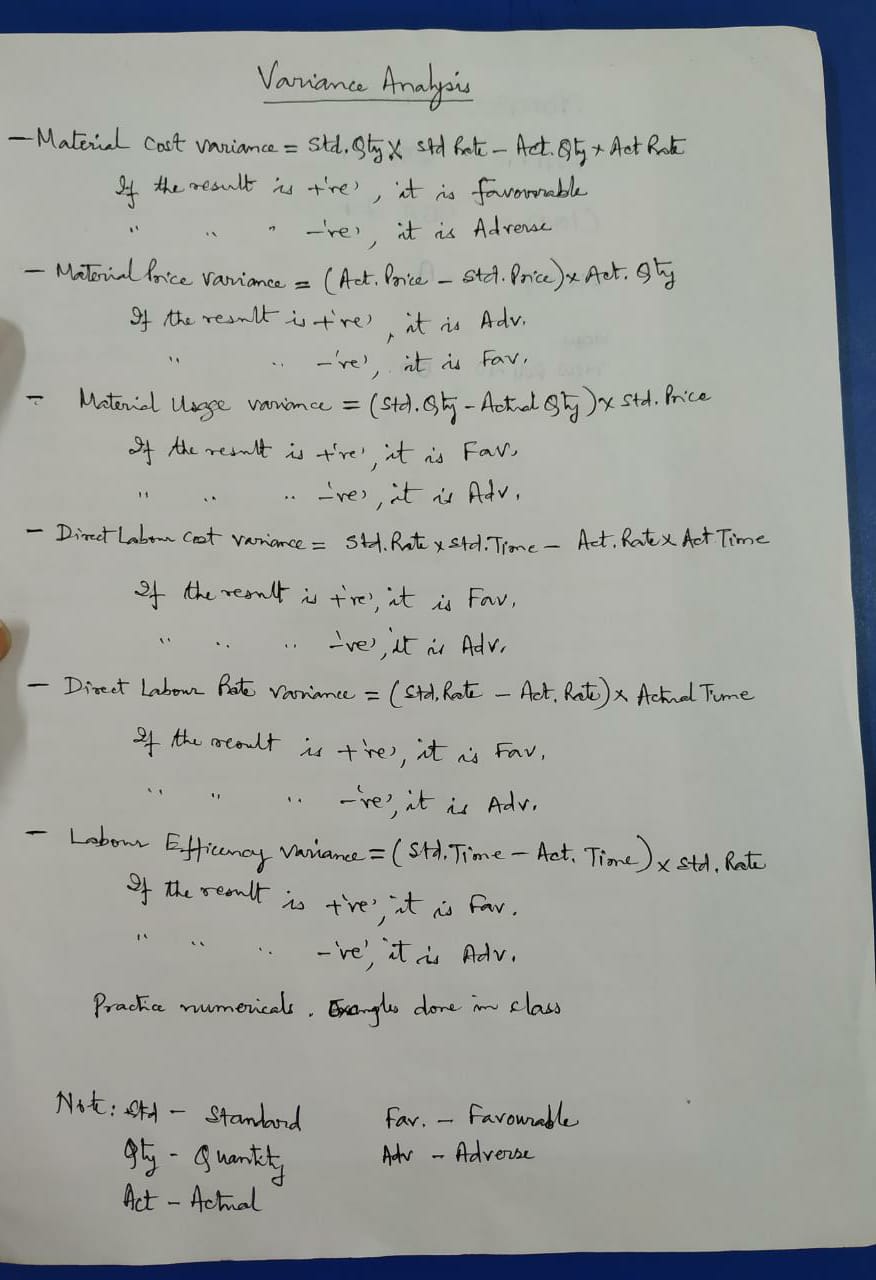 Variance Analysis
- Material Cost variance = Std. Qty X Std Rate - Act. Qty x Act Rate
If the result is +'ve', it is favovorable
" " " -'ve', it is Adverse
- Material Price Variance = (Act. Price - Std. Price) x Act. Qty
If the result is +'ve', it is Adv.
" " -'ve', it is Fav.
- Material Usage variance = (Std. Qty - Actual Qty) x Std. Price
If the result is +'ve', it is Fav.
" " " -'ve', it is Adv.
- Direct Labour Cost variance = Std. Rate x Std. Time - Act. Rate x Act Time
If the result is +'ve', it is Fav.
" " " -'ve', it is Adv.
- Direct Labour Rate variance = (Std. Rate - Act. Rate) x Actual Time
If the result is +'ve', it is Fav.
" " " -'ve', it is Adv.
- Labour Efficency variance = (Std. Time - Act. Time) x Std. Rate
If the result is +'ve', it is Fav.
" " " -'ve', it is Adv.
Practice numericals. Examples done in class
Note: Std - Standard Fav. - Favourable
Qty - Quantity Adv - Adverse
Act - Actual